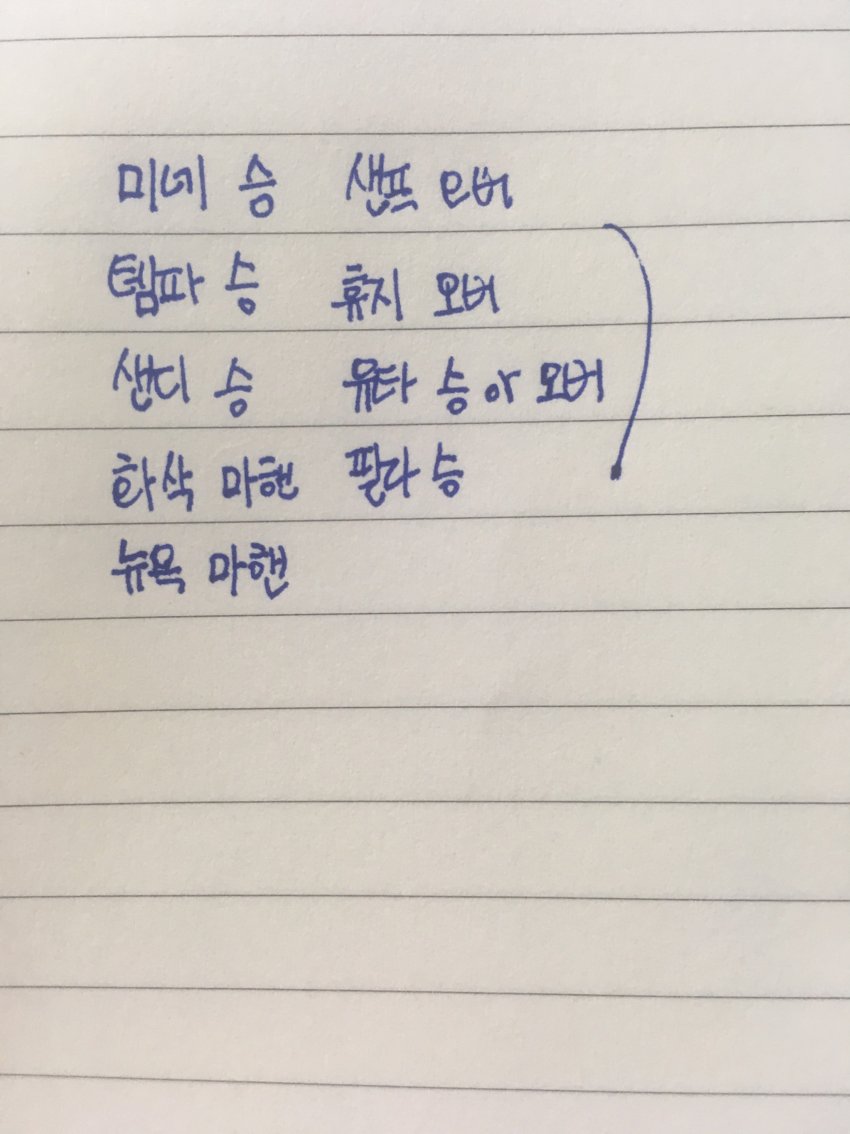 미네 승 샌프 오버
템파 승 휴지 오버
샌디 승 유타 승 or 오버
화삭 마핸 필라 승
뉴욕 마핸